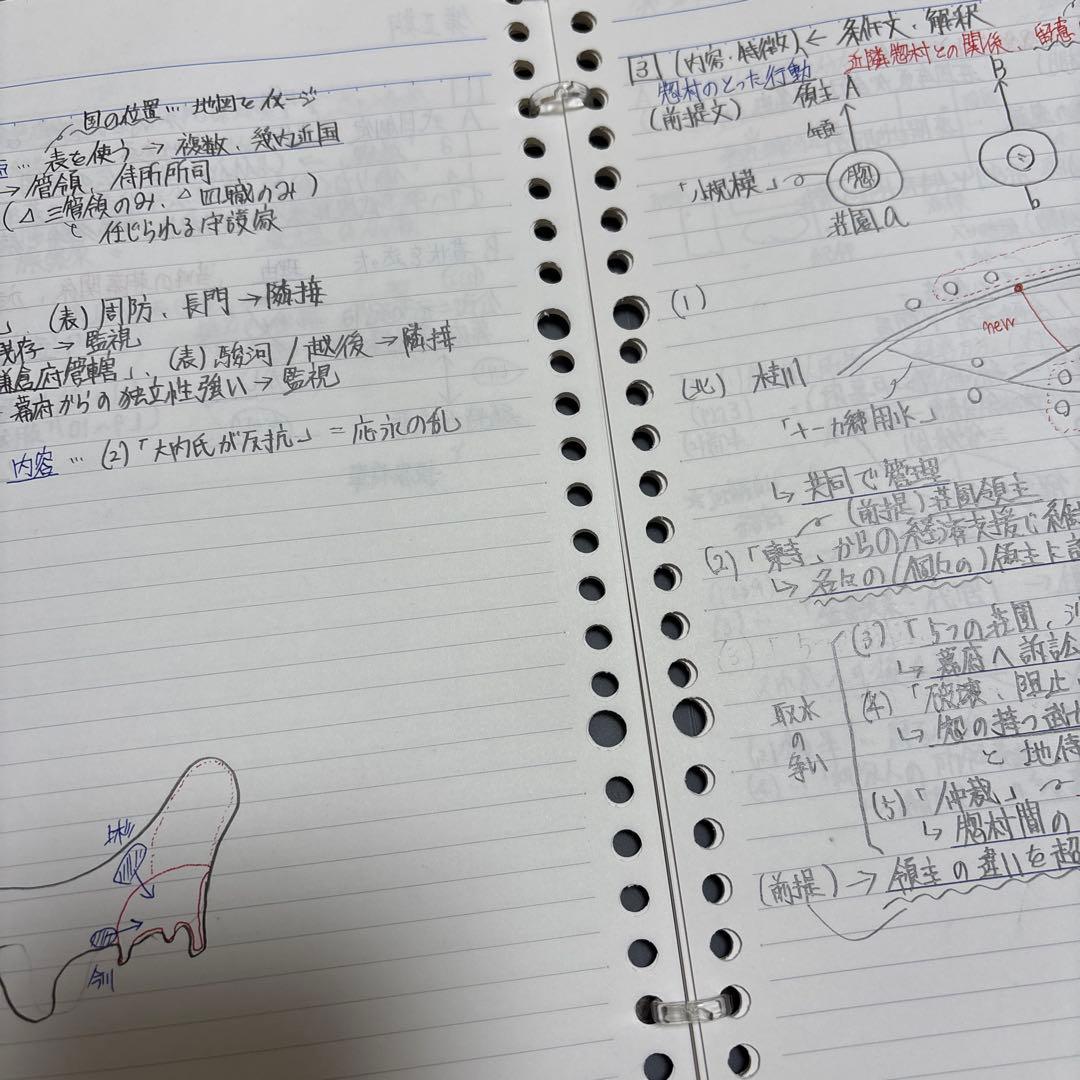 国の位置… 地図をイメージ
… 表を使う → 複数、畿内近国
→ 管領、侍所所司
(△三管領のみ、△四職のみ)
任じられる守護家
」、(表) 周防、長門 → 隣接
残存 → 監視
鎌倉府管轄」、(表) 駿河/越後 → 隣接
幕府からの独立性強い → 監視
内容 … (2)「大内氏が反抗」= 応永の乱
上杉
今川
3 (内容・特徴) ← 条件文・解釈
惣村のとった行動
近隣惣村との関係、留意
(前提文)
領主A
B
「小規模」
惣
荘園a
b
(1)
new
(北) 桂川
「十一カ郷用水」
↳ 共同で管理
(前提) 荘園領主
(2)「東寺」からの経済支援
↳ 各々の(個々の)領主に
(3)「5つの荘園、
↳ 幕府へ訴訟
取水の争い
(4)「破壊、阻止
↳ 惣の持つ
と 地侍
(5)「仲裁」
↳ 惣村間の
(前提) → 領主の違いを超